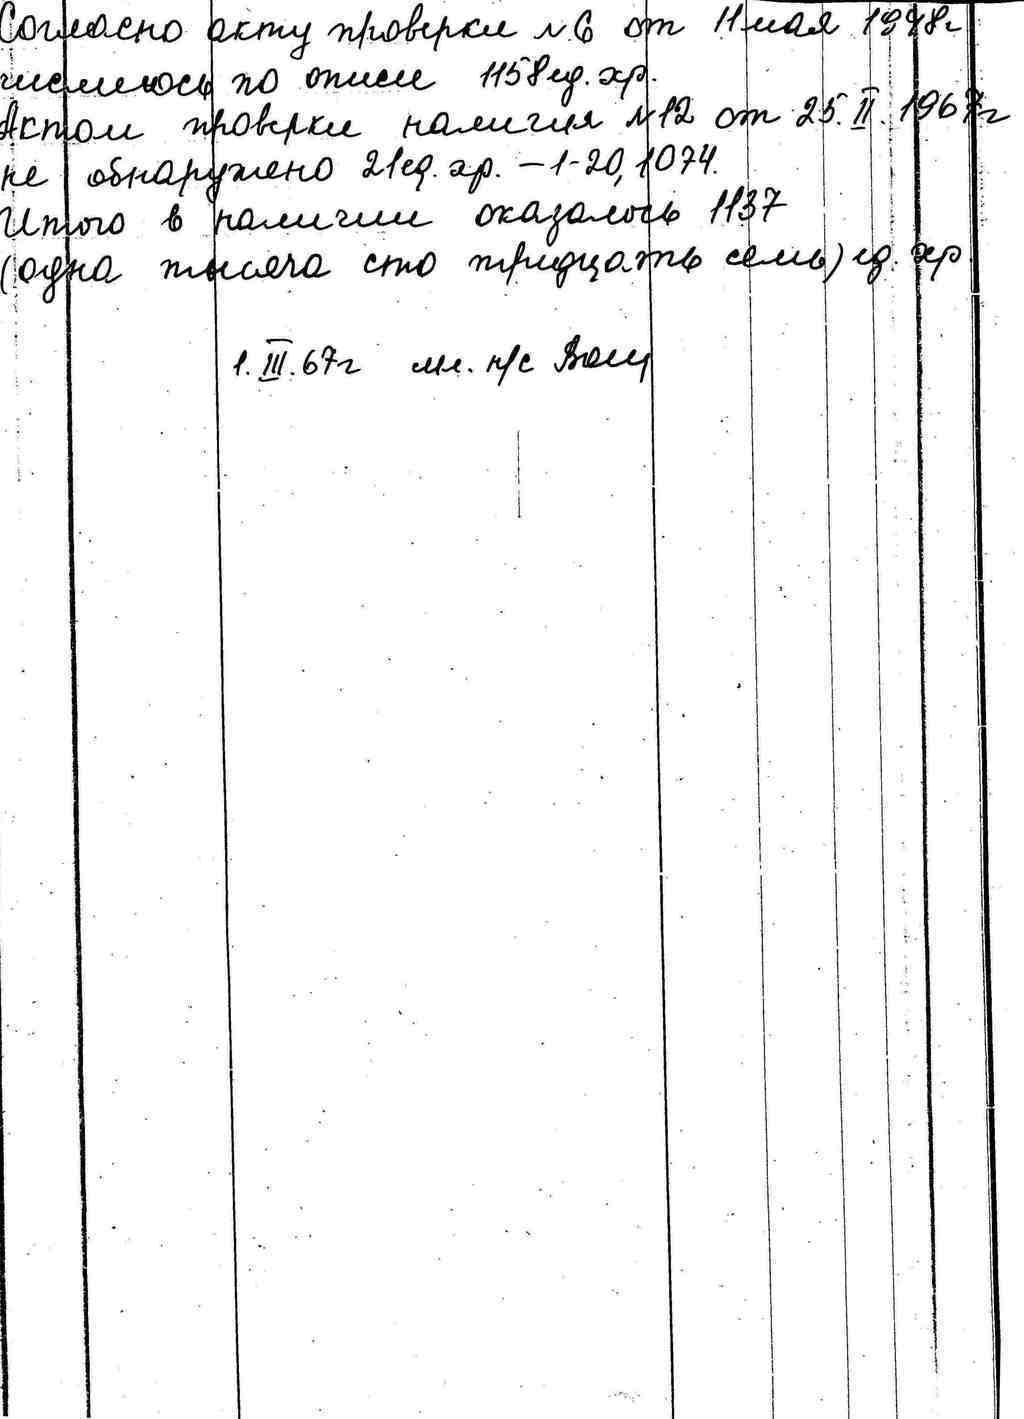 Согласно акту проверки №6 от 11 мая 1948г
числилось по описи 1158 ед. хр.
Актом проверки наличия №12 от 25.II.1967г
не обнаружено 21 ед. хр. – 1-20, 1074.
Итого в наличии оказалось 1137
(одна тысяча сто тридцать семь) ед. хр.
1.III.67г мл. н/с